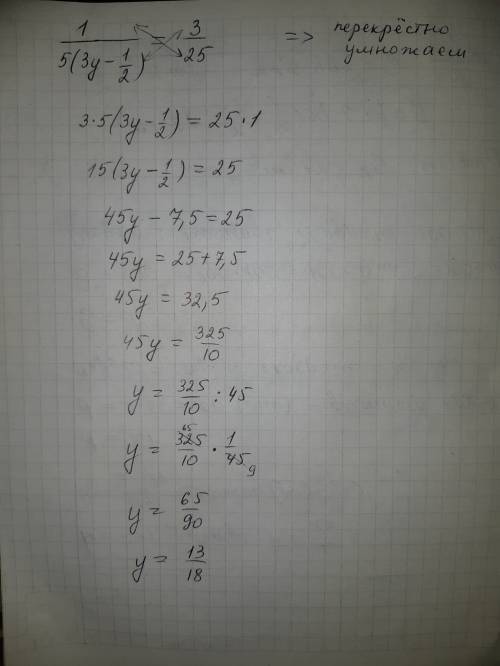 1/(5(3y - 1/2)) = 3/25 => перекрёстно умножаем
3·5(3y - 1/2) = 25·1
15(3y - 1/2) = 25
45y - 7,5 = 25
45y = 25 + 7,5
45y = 32,5
45y = 325/10
y = 325/10 : 45
65
y = 325/10 · 1/45
9
y = 65/90
y = 13/18